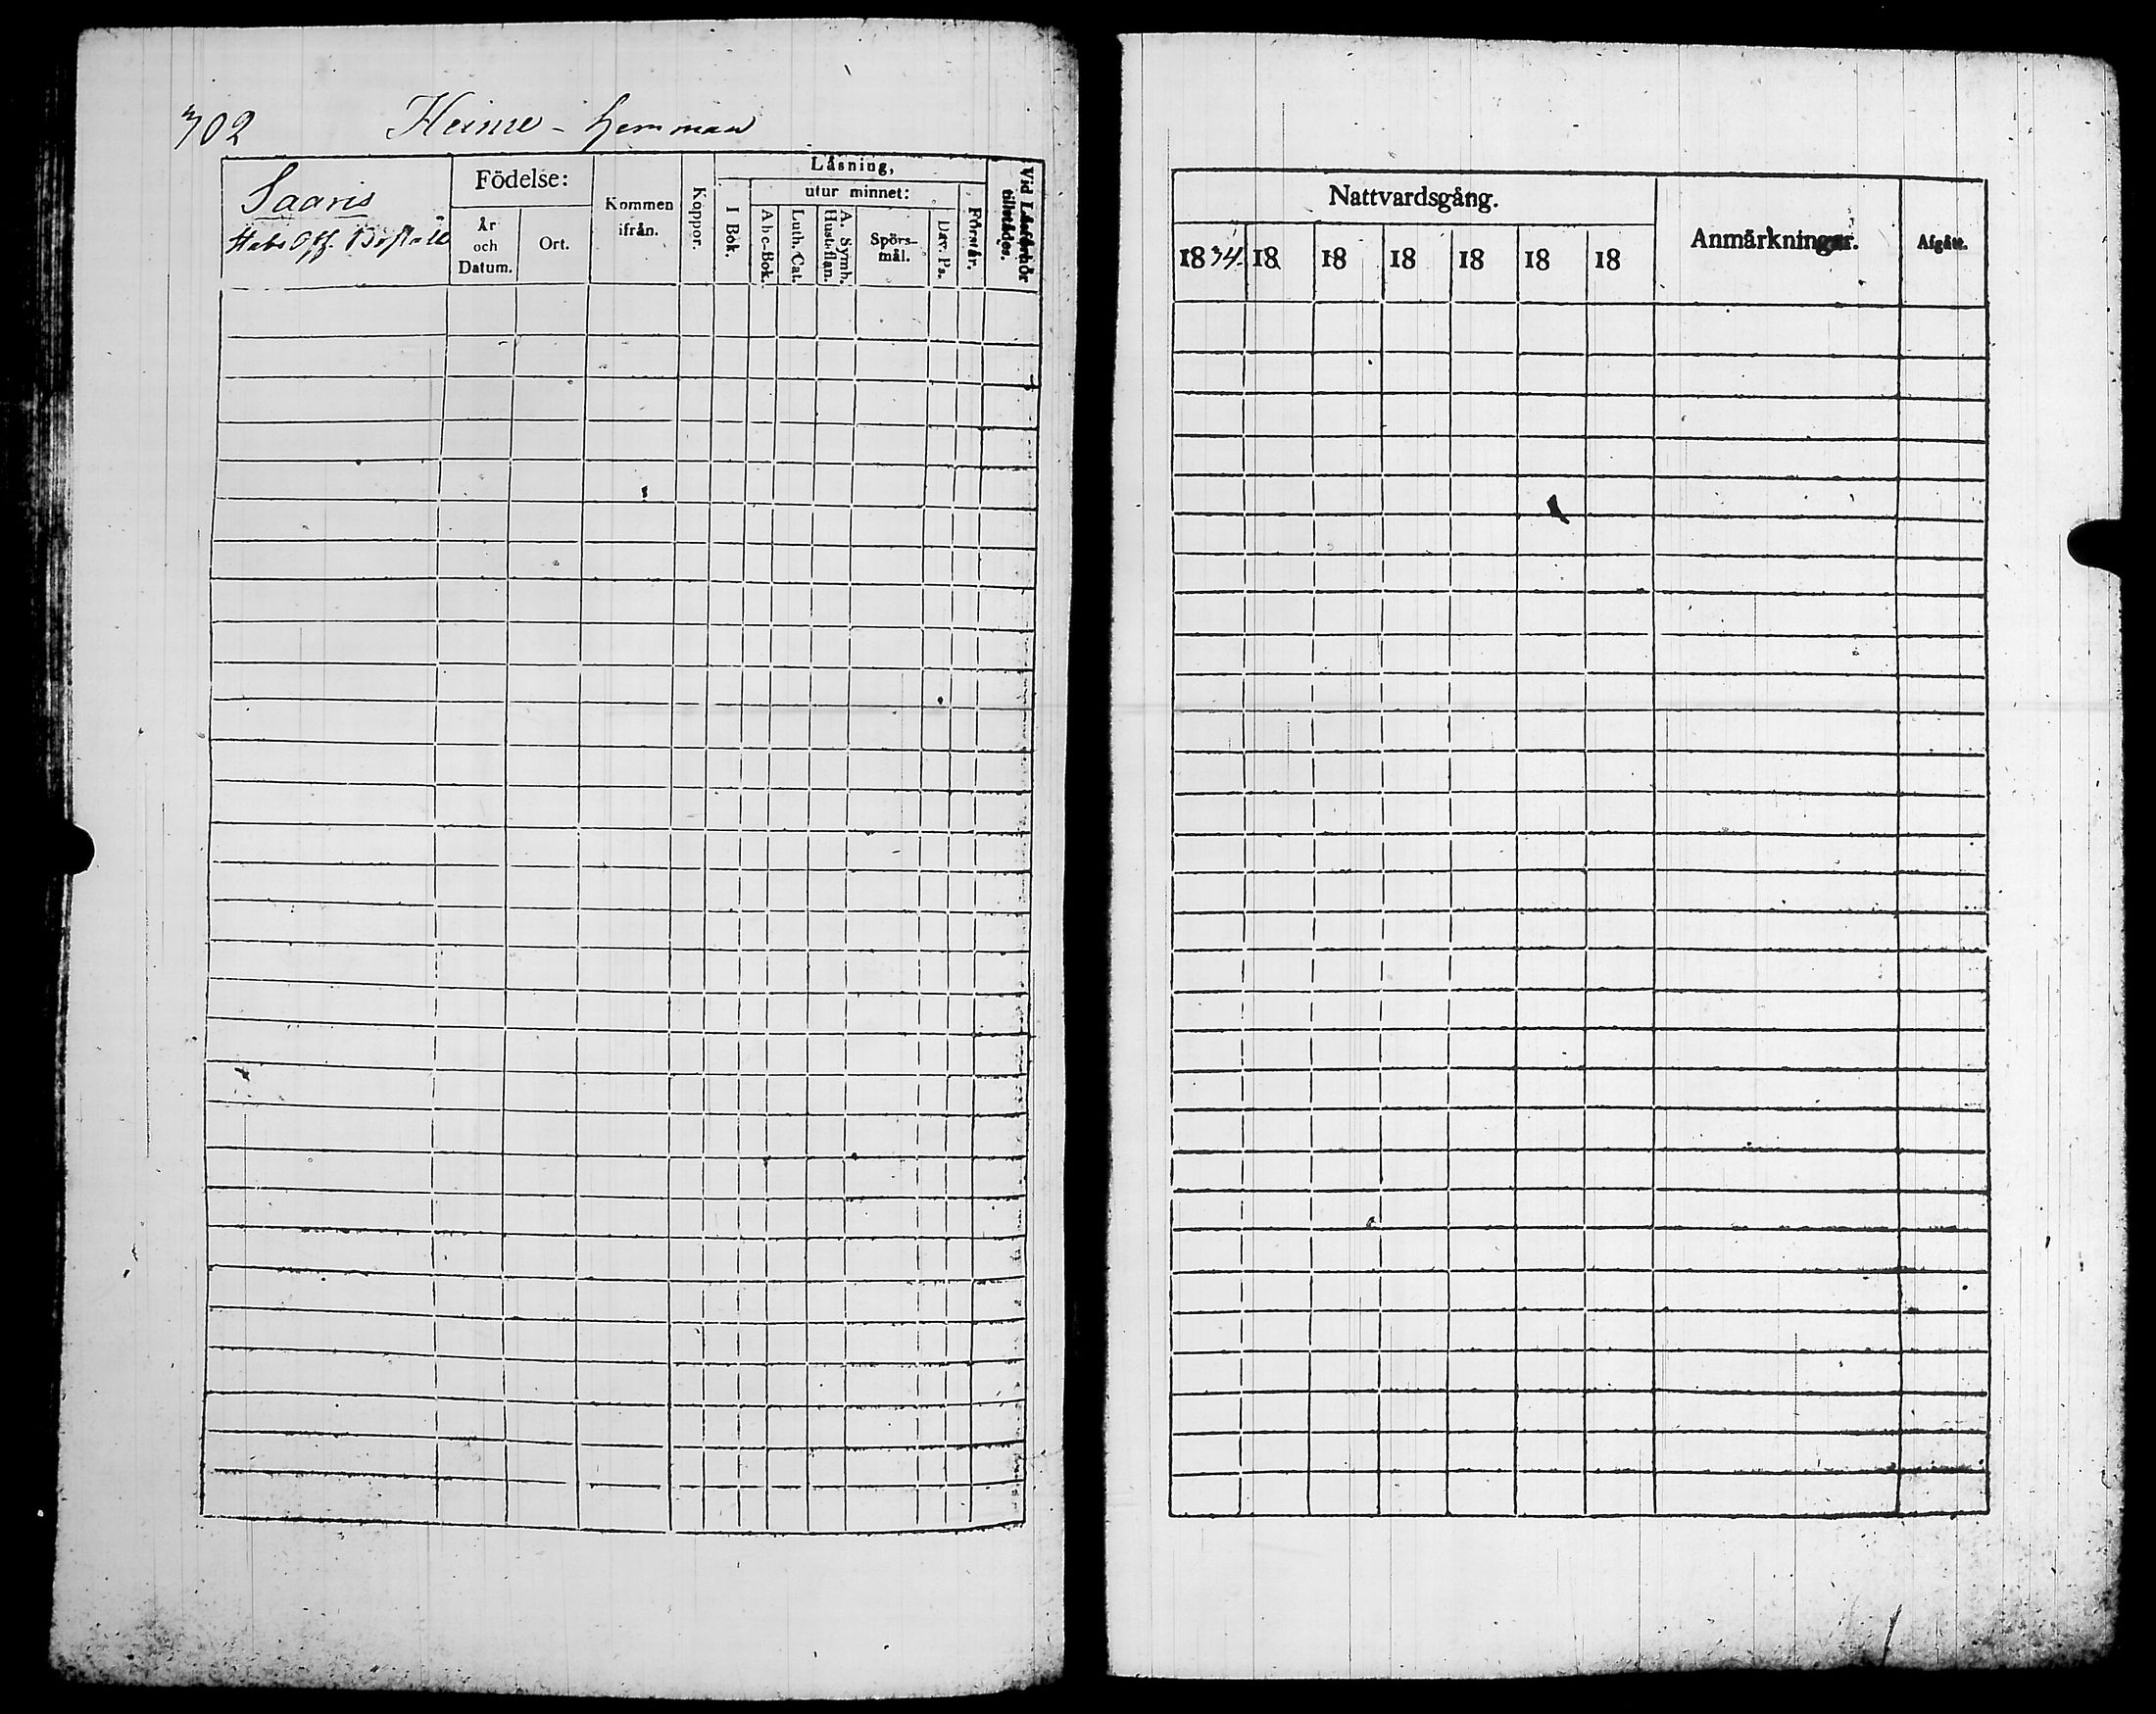 302 Heime - hemman
Saaris
Stabs Off. Boställe
Födelse:
År
och
Datum.
Ort.
Kommen
ifrån.
Koppor.
Läsning,
I Bok.
utur minnet:
Abc-Bok.
Luth. Cat.
A. Symb.
Hust.flan.
Spörs-
mål.
Dav. Ps.
Förstår.
Vid Läseförhör
tillstädes.
Nattvardsgång.
1834. 18 18 18 18 18 18
Anmärkningar.
Afgått.